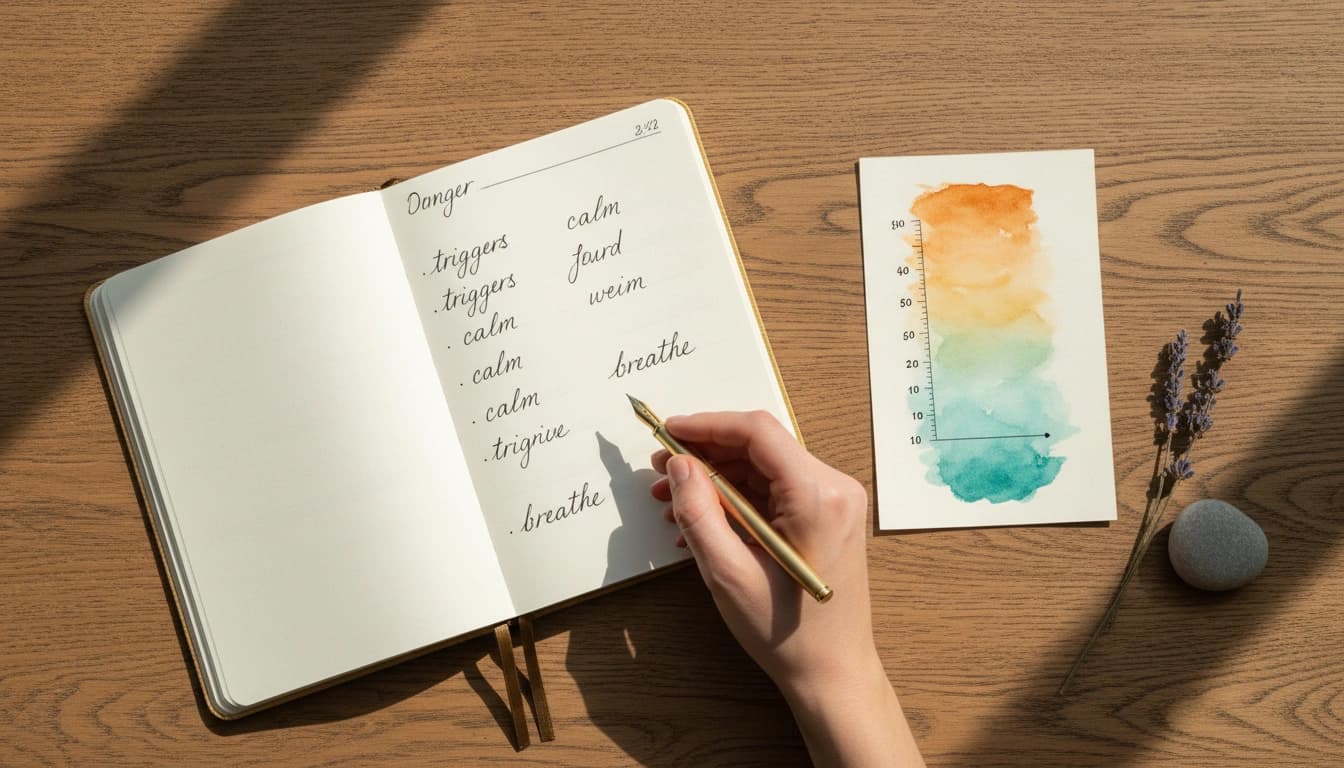 Danger
. triggers
. triggers
. calm
. calm
. calm
. trigrive
. breathe
calm
weim
breathe
40
50
50
20
10
10
10